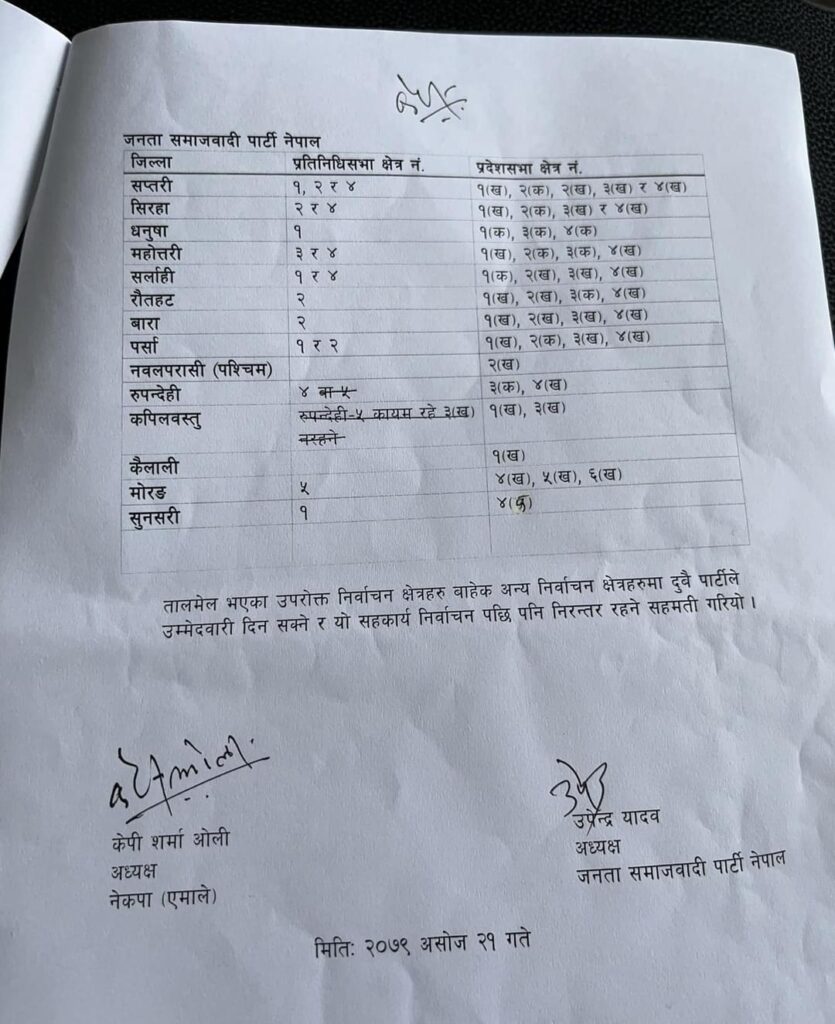 जनता समाजवादी पार्टी नेपाल
जिल्ला प्रतिनिधिसभा क्षेत्र नं. प्रदेशसभा क्षेत्र नं.
सप्तरी १, २ र ४ १(ख), २(क), २(ख), ३(ख) र ४(ख)
सिरहा २ र ४ १(ख), २(क), ३(ख) र ४(ख)
धनुषा १ १(क), ३(क), ४(क)
महोत्तरी ३ र ४ १(ख), २(क), ३(क), ४(ख)
सर्लाही १ र ४ १(क), २(ख), ३(ख), ४(ख)
रौतहट २ १(ख), २(ख), ३(क), ४(ख)
बारा २ १(ख), २(ख), ३(ख), ४(ख)
पर्सा १ र २ १(ख), २(क), ३(ख), ४(ख)
नवलपरासी (पश्चिम) २(ख)
रुपन्देही ४ वा ५ ३(क), ४(ख)
कपिलवस्तु रुपन्देही-५ कायम रहे ३(ख) १(ख), ३(ख)
नरहने
कैलाली १(ख)
मोरङ ५ ४(ख), ५(ख), ६(ख)
सुनसरी १ ४
तालमेल भएका उपरोक्त निर्वाचन क्षेत्रहरु बाहेक अन्य निर्वाचन क्षेत्रहरुमा दुवै पार्टीले
उम्मेदवारी दिन सक्ने र यो सहकार्य निर्वाचन पछि पनि निरन्तर रहने सहमती गरियो ।
केपी शर्मा ओली
अध्यक्ष
नेकपा (एमाले)
उपेन्द्र यादव
अध्यक्ष
जनता समाजवादी पार्टी नेपाल
मितिः २०७९ असोज २१ गते